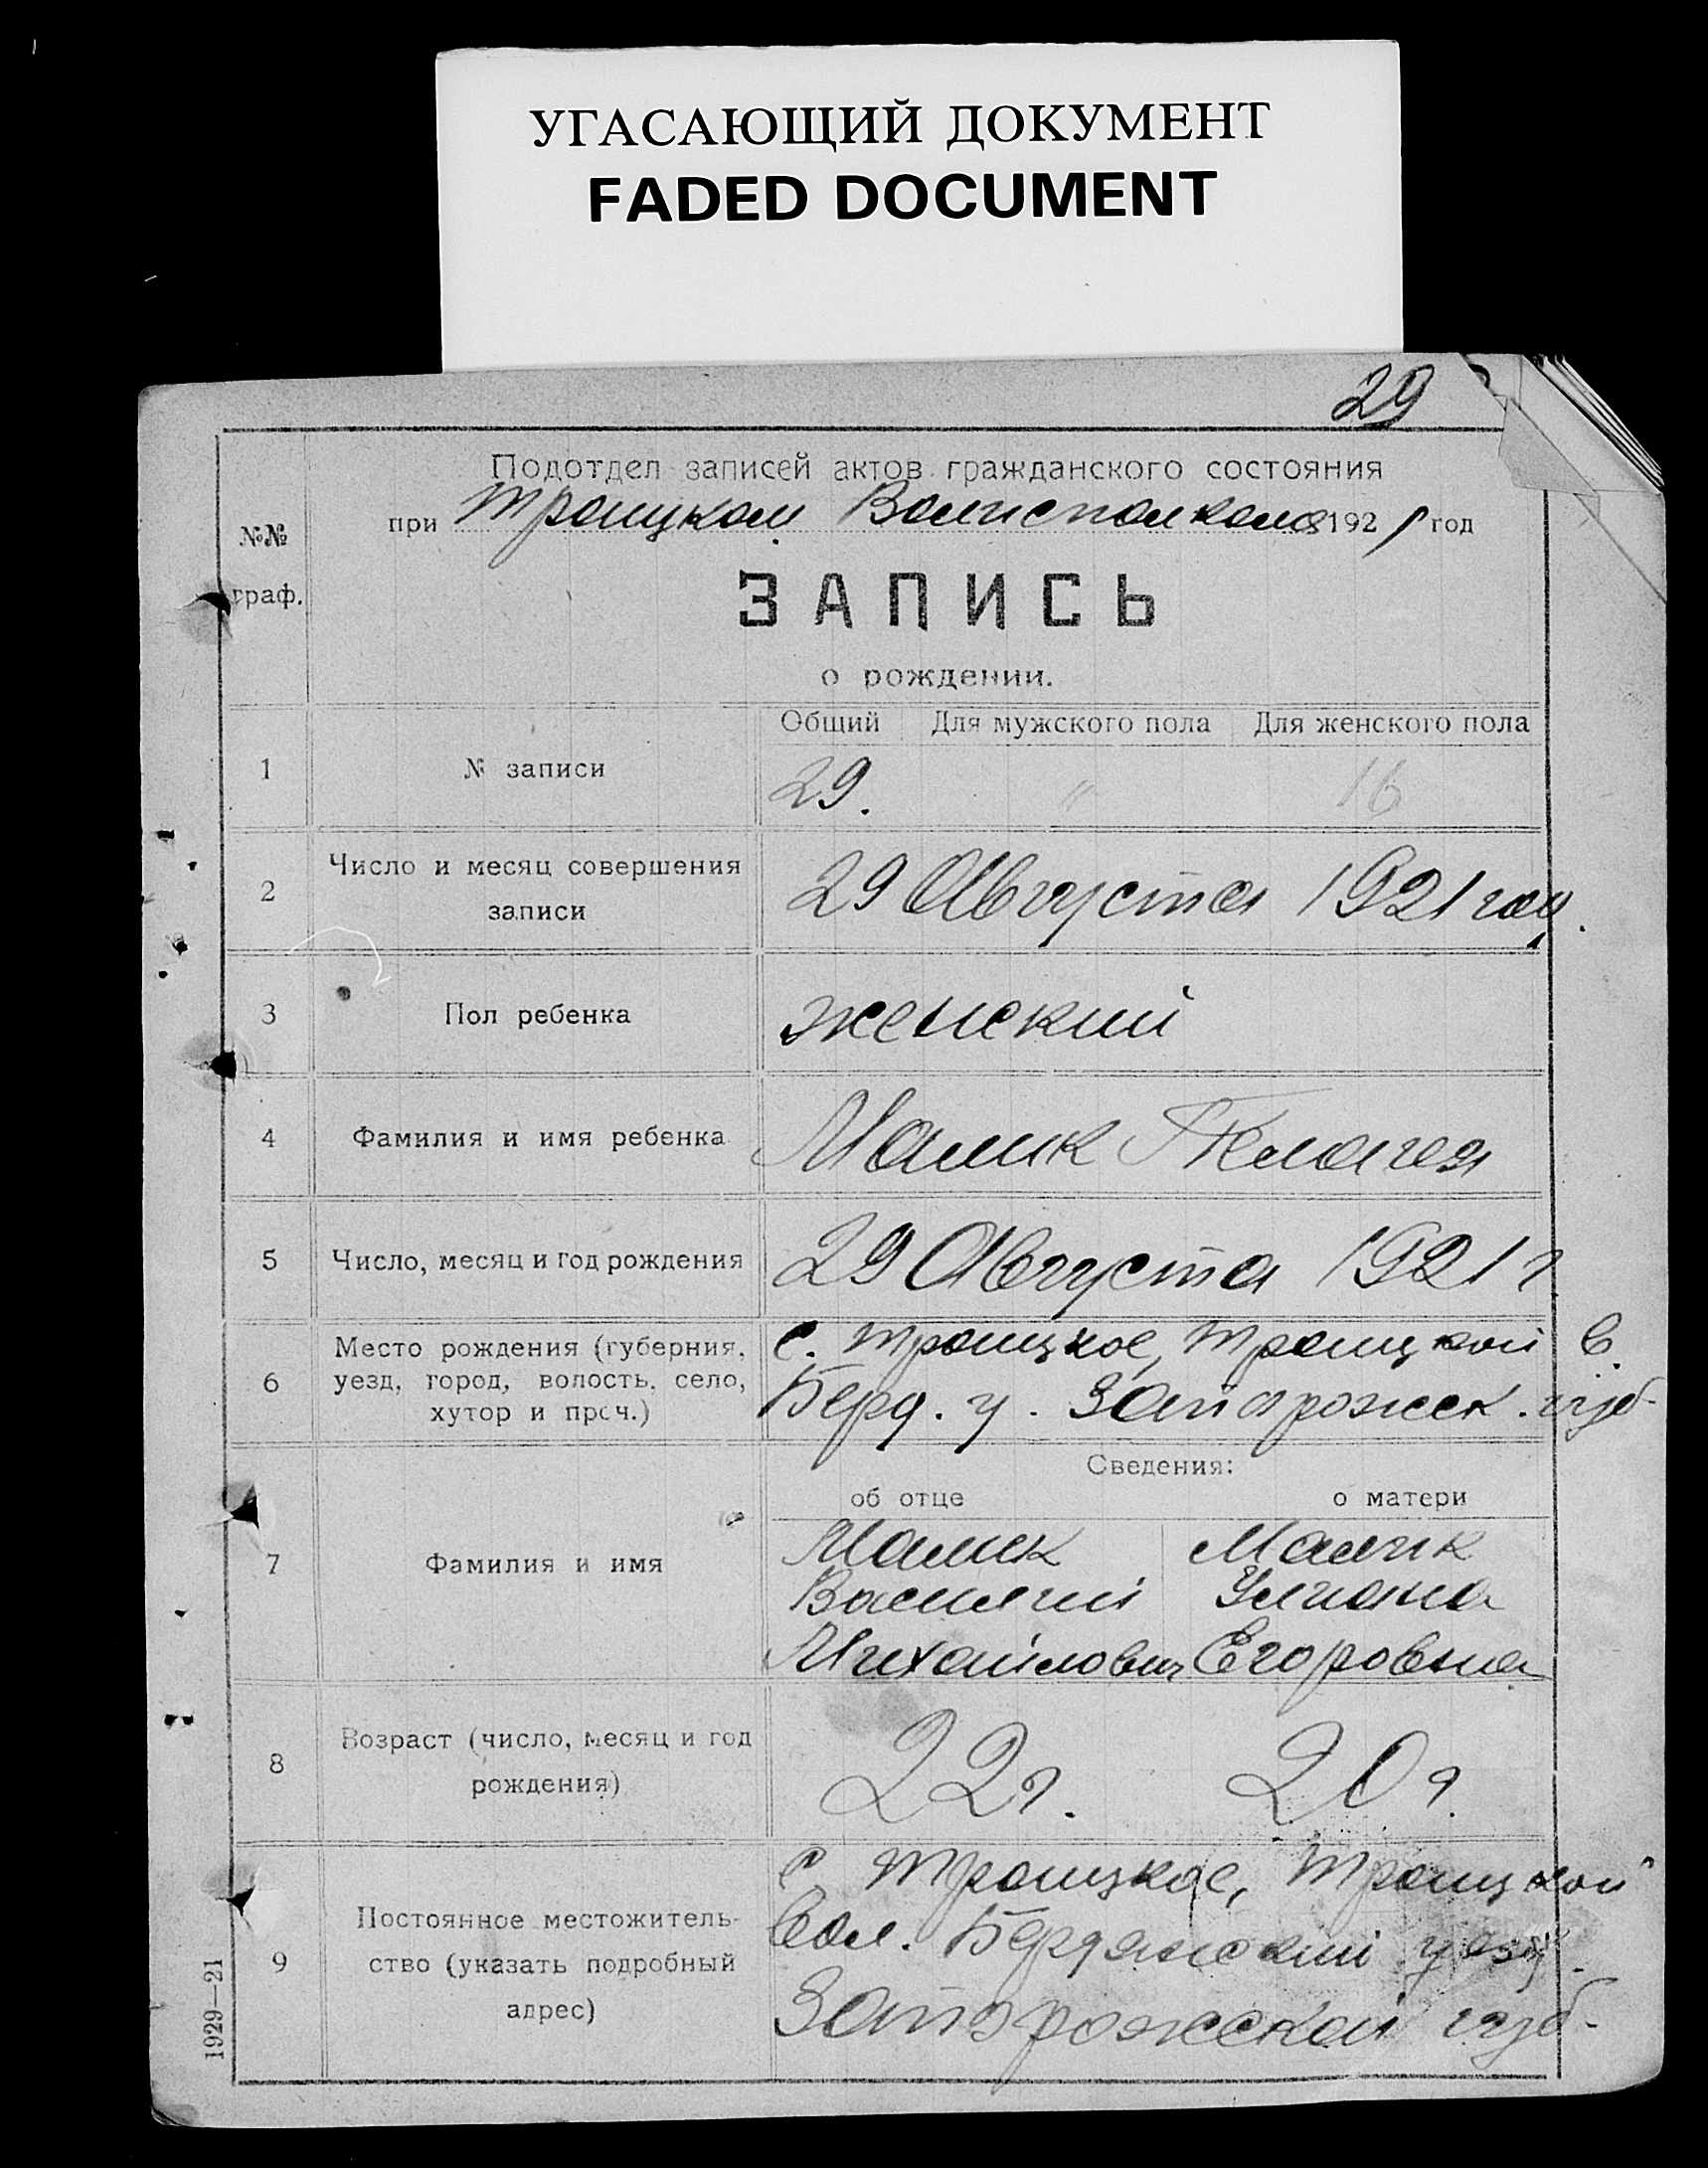 УГАСАЮЩИЙ ДОКУМЕНТ
FADED DOCUMENT
29
№№
граф.
Подотдел записей актов гражданского состояния
при Троицком Волисполкоме 1921 год
ЗАПИСЬ
о рождении.
Общий Для мужского пола Для женского пола
1 № записи 29. " 16
2 Число и месяц совершения
записи
29 Августа 1921 год.
3 Пол ребенка женский
4 Фамилия и имя ребенка Малик Пелагея
5 Число, месяц и год рождения 29 Августа 1921 г
6 Место рождения (губерния,
уезд, город, волость, село,
хутор и проч.)
с. Троицкое, Троицкой в.
Берд. у. Запорожск. губ.
Сведения:
об отце о матери
7 Фамилия и имя
Малик Малик
Василий Улиана
Михайлович Егоровна
8 Возраст (число, месяц и год
рождения)
22 г. 20 г.
9 Постоянное местожитель-
ство (указать подробный
адрес)
с Троицкое, Троицкой
вол. Бердянский уезд.
Запорожской губ.
1929—21